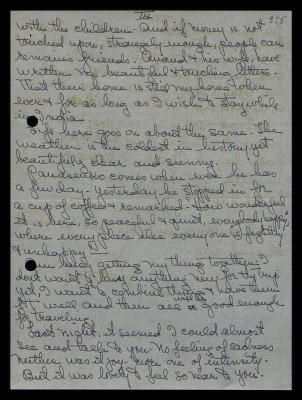 III
355
with the children. And if money is not
touched upon, strangely enough, people can
remain friends. Anand & his wife, have
written me beautiful & touching letters.
That their home is still my home when
ever & for as long as I wish to stay while
in India.
Life here goes on about the same. The
weather is the coldest in history, yet
beautifully clear and sunny.
comes when ever he has
a few days. Yesterday he stopped in for
a cup of coffee & remarked: "How wonderful
it is here, so peaceful & quiet, everybody happy,
where every place else everyone is fighting
& unhappy."
I'm busy getting my things together. I
don't want to buy anything new for my trip
yet, I want to combine things & have them
fit well and them all good enough
for traveling.
Last night, it seemed I could almost
see and talk to you. No feeling of sadness
neither was it joy - more one of intensity.
But it was lovely to feel so near to you.